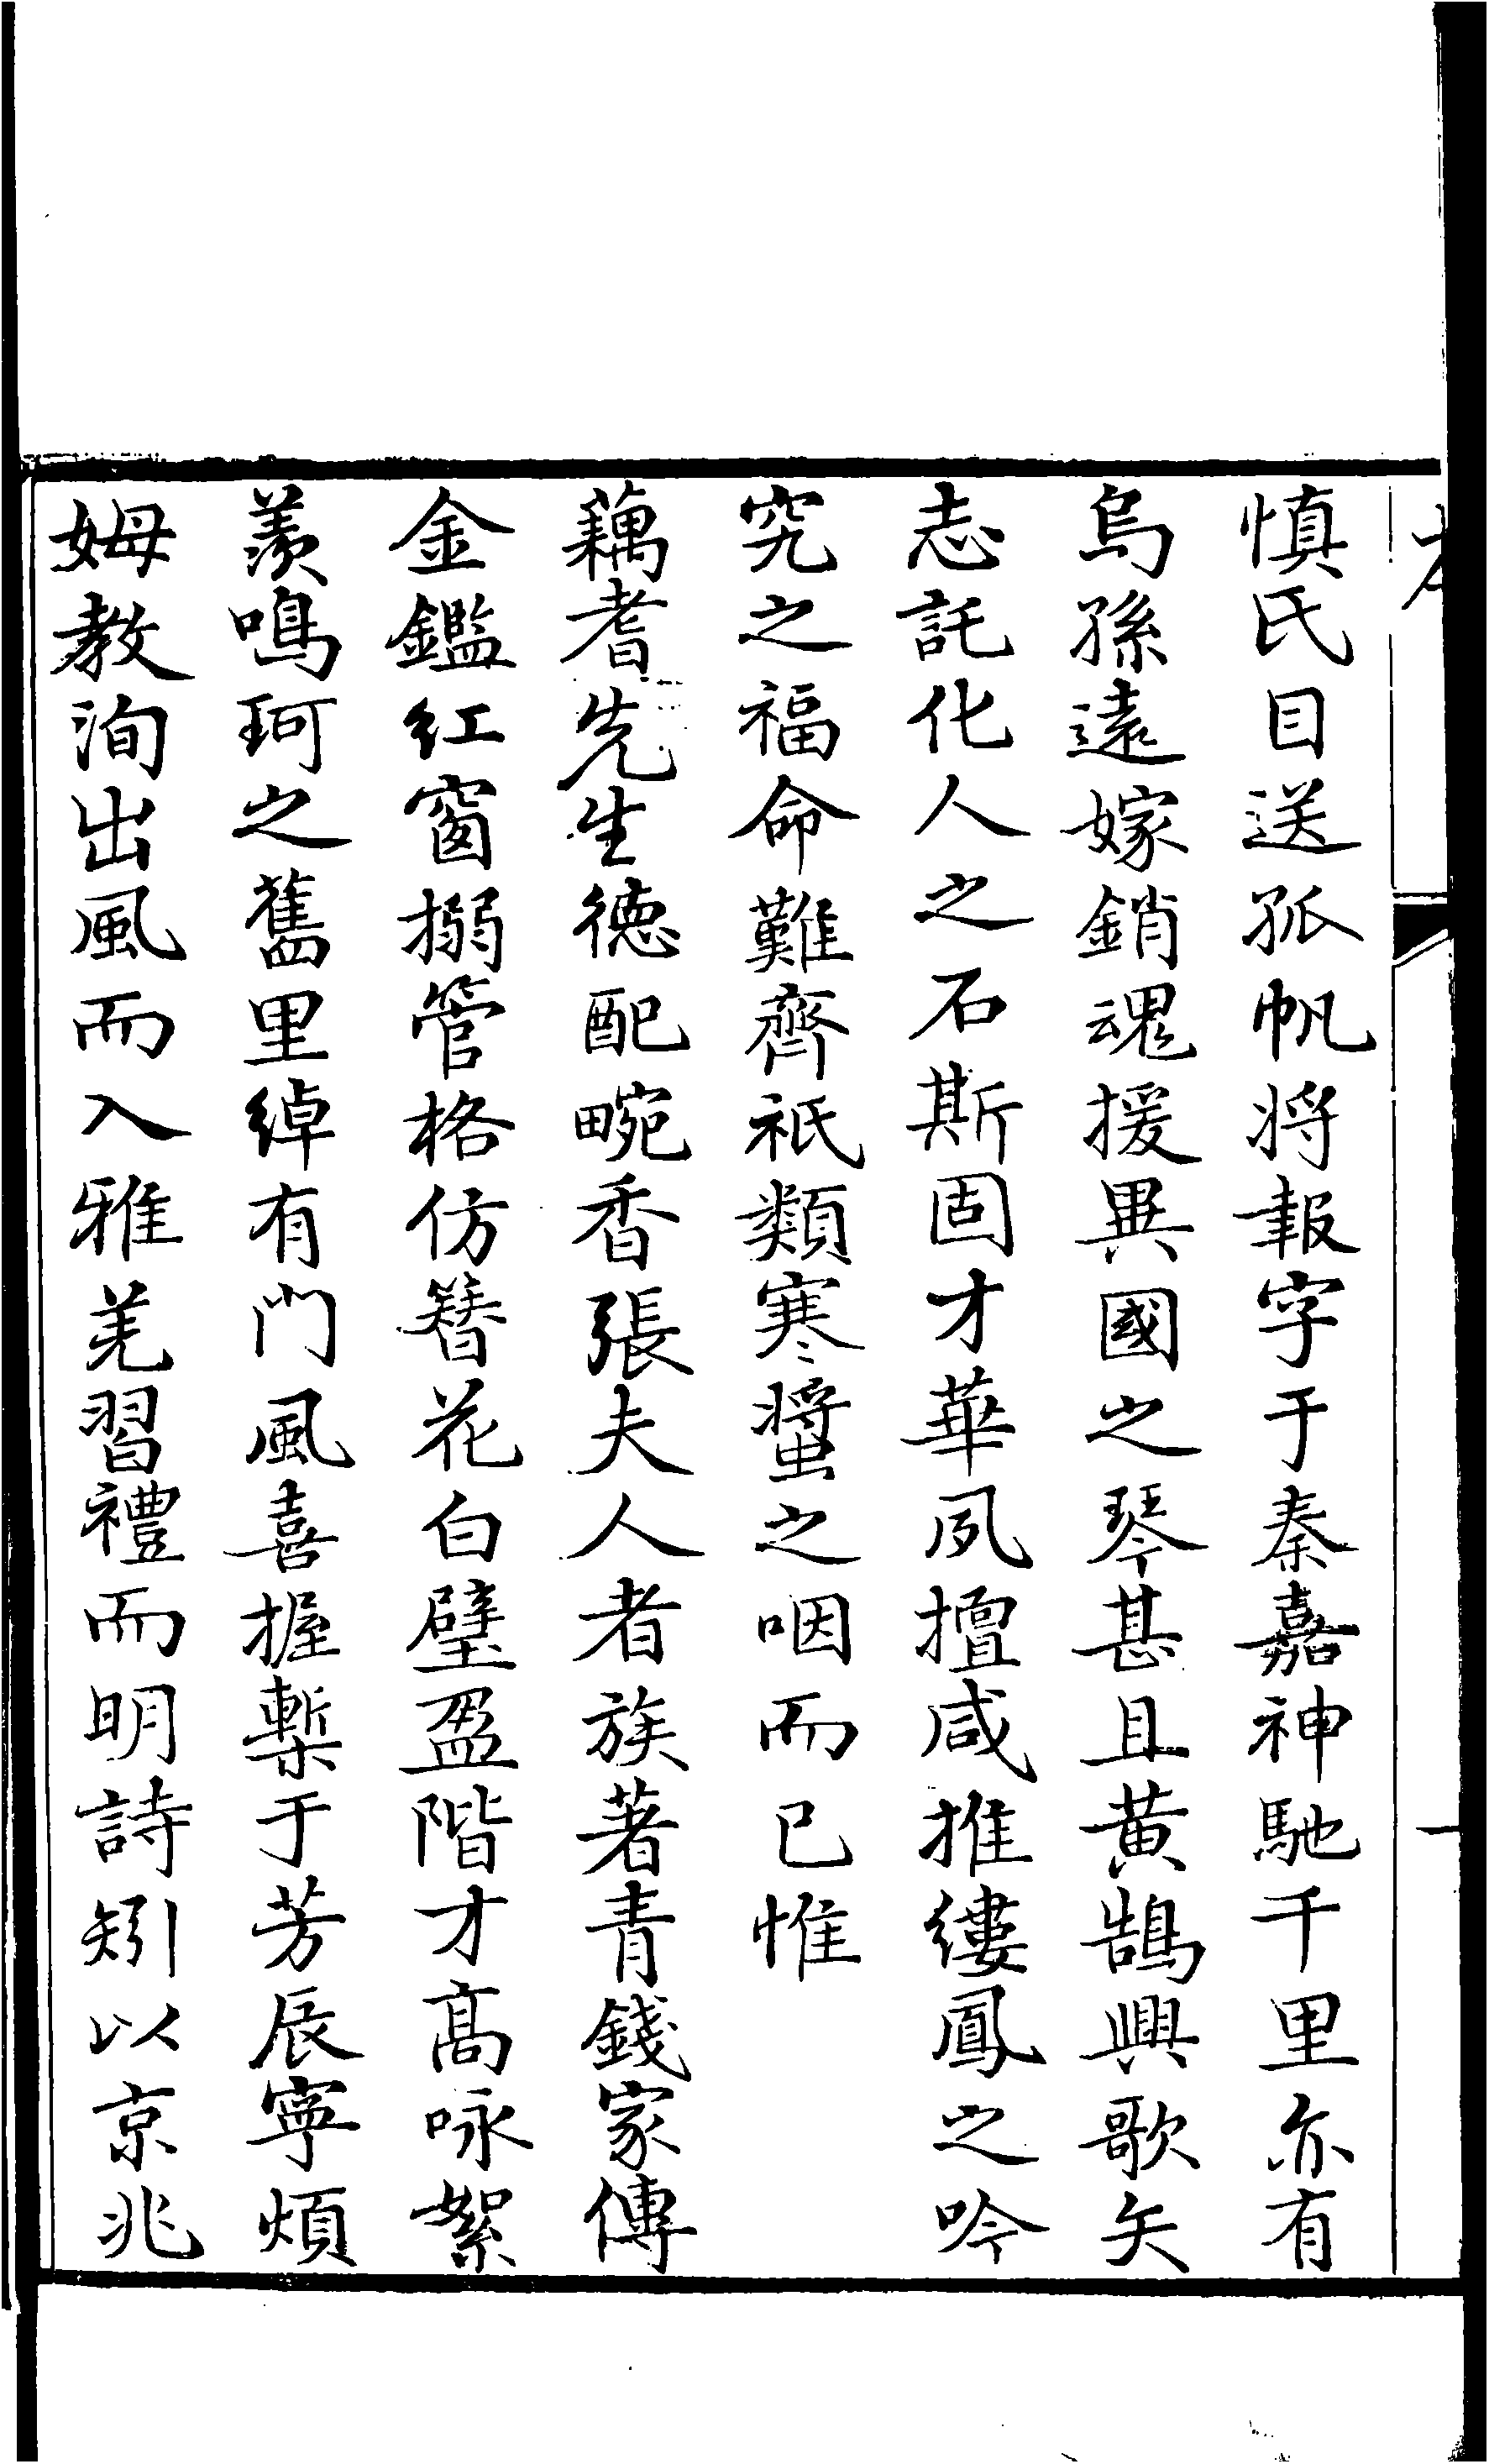 慎氏目送孤帆將報字于秦嘉神馳千里亦有
烏孫遠嫁銷魂援異國之琴甚且黃鵠興歌矢
志託化人之石斯固才華夙擅咸推縷鳳之吟
究之福命難齊祇類寒螿之咽而已惟
藕耆先生德配畹香張夫人者族著青錢家傳
金鑑紅窗搦管格仿簪花白璧盈階才高咏絮
羨鳴珂之舊里綽有門風喜握槧于芳辰寧煩
姆教洵出風而入雅羌習禮而明詩矧以京兆
一